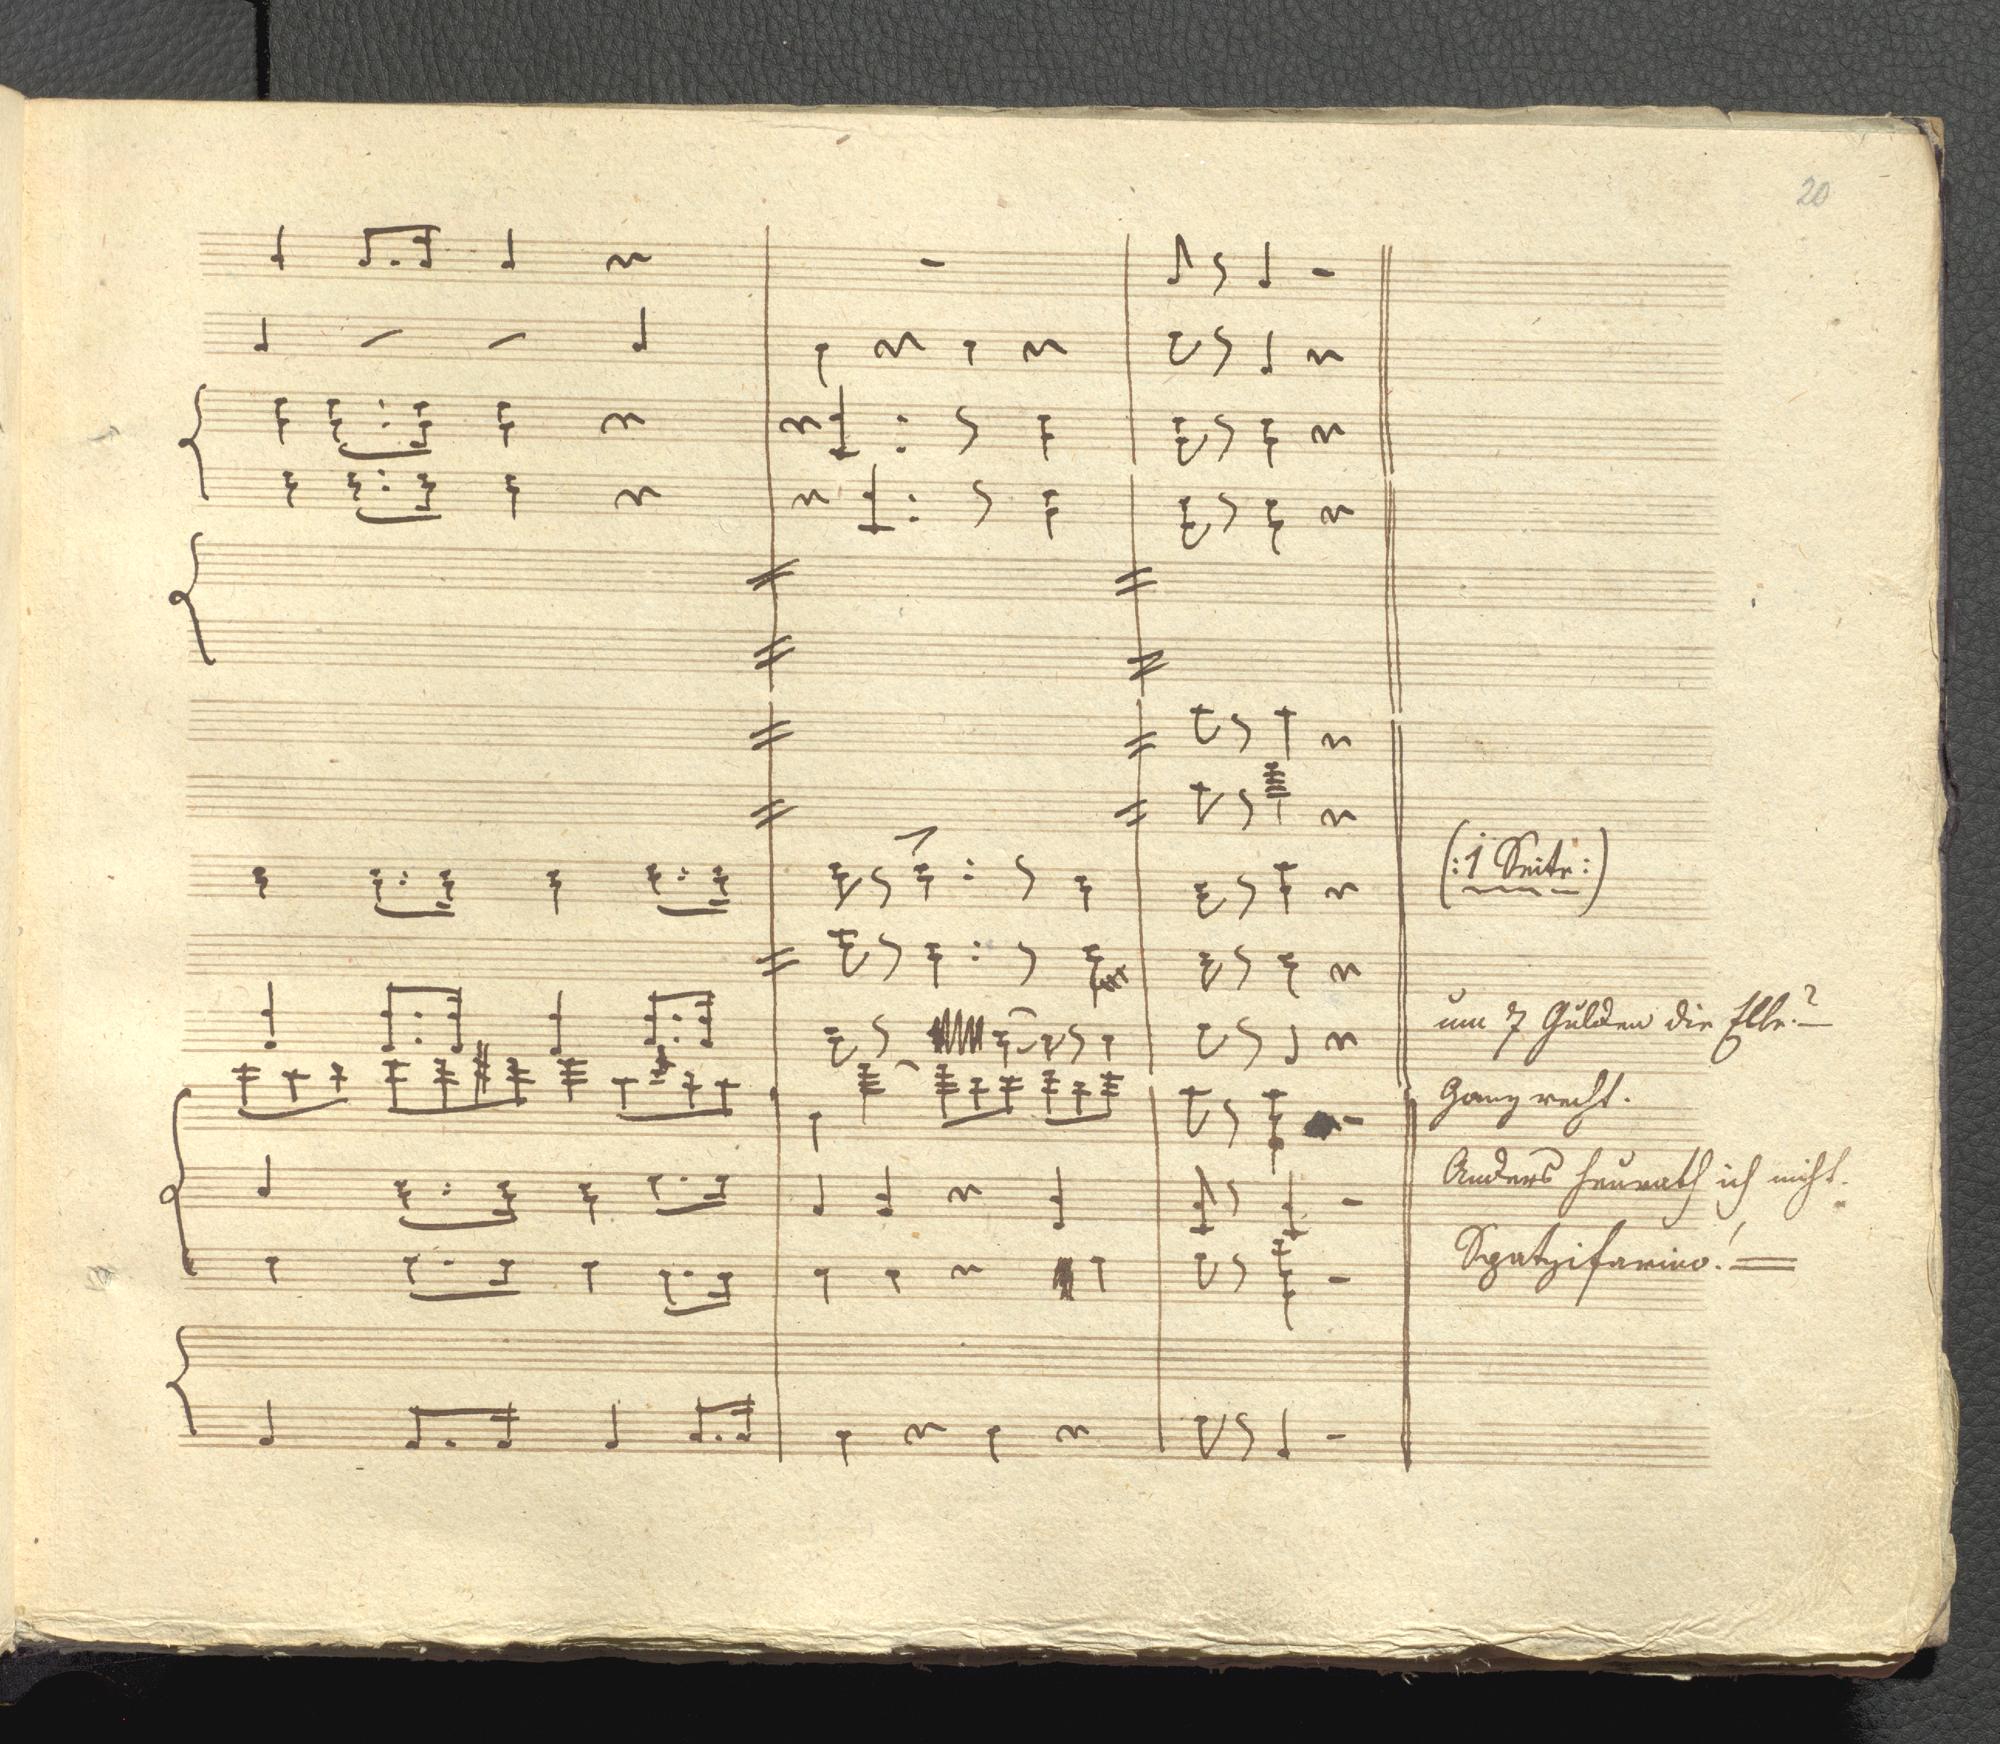 20
(:1 Seite:)
um 7 Gulden die Elle?—
Ganz recht.
Anders heurath ich nicht.
Spatzifarino!